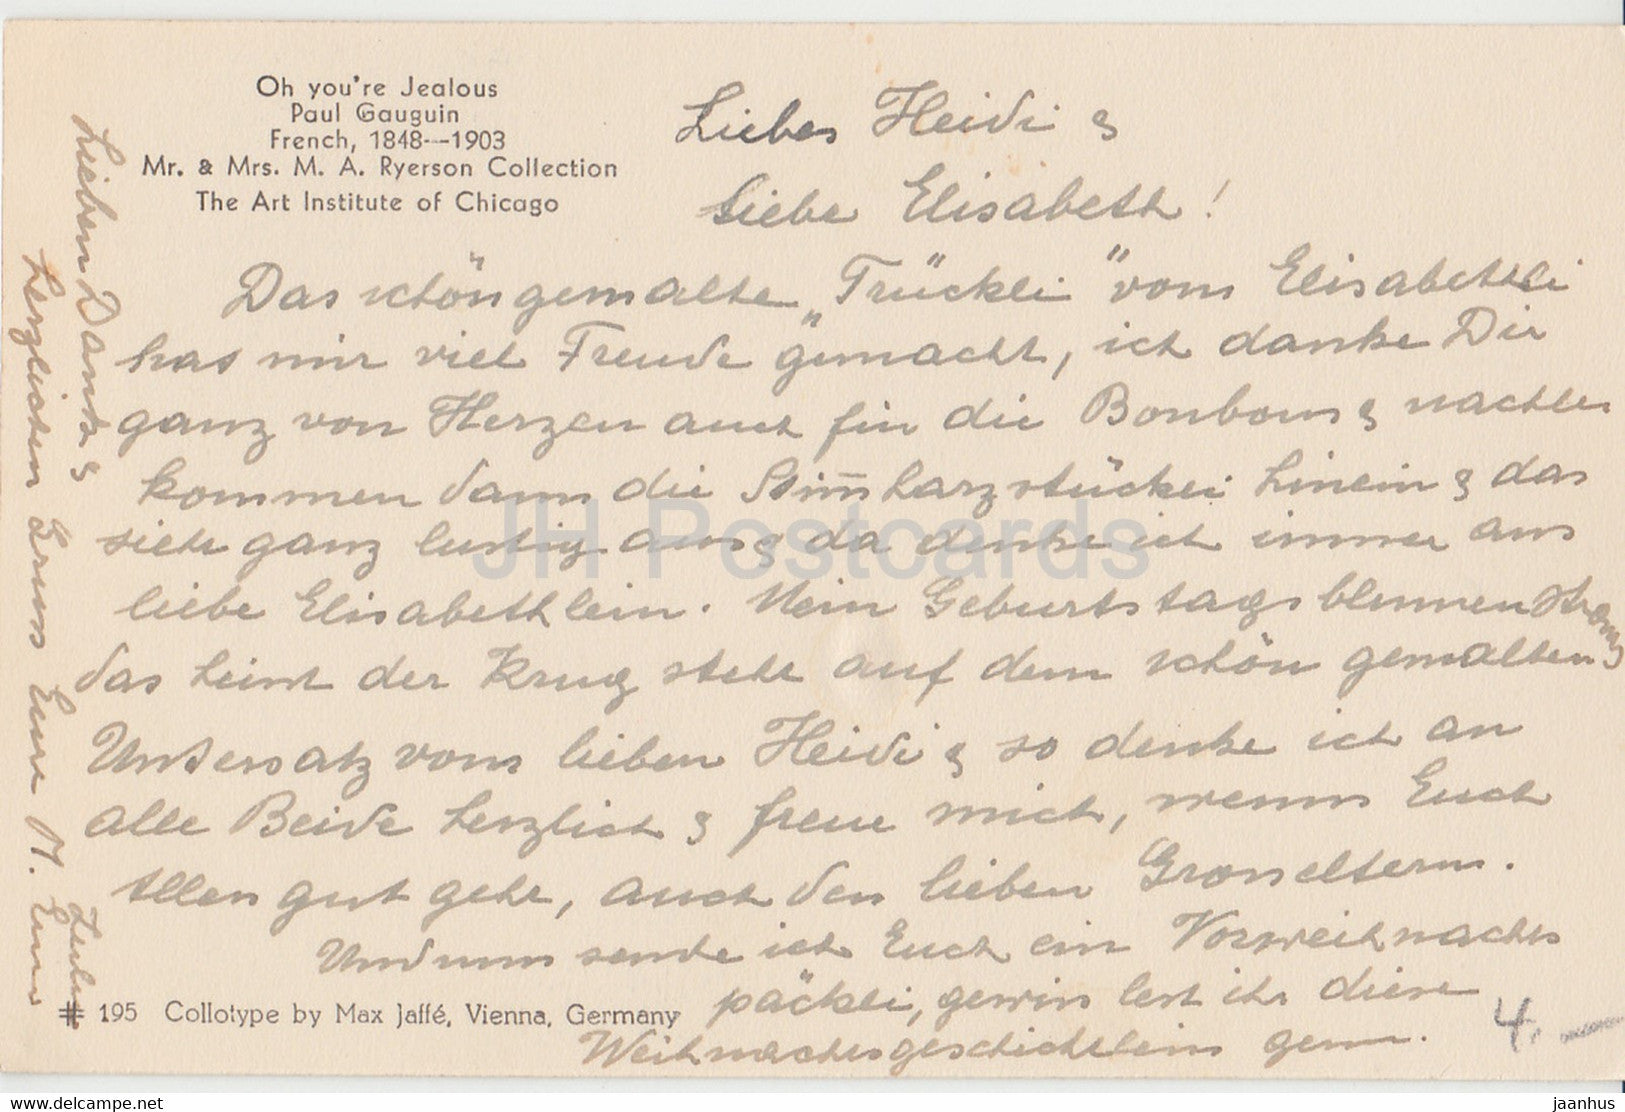 Oh you're Jealous
Paul Gauguin
French, 1848--1903
Mr. & Mrs. M. A. Ryerson Collection
The Art Institute of Chicago
Liebes Heidi &
liebe Elisabeth!
Das schön gemalte „Trückli" vom Elisabethli
hat mir viel Freude gemacht, ich danke Dir
ganz von Herzen auch für die Bonbons &
kommen dann die hinein & das
sieht ganz lustig aus & da denke ich immer ans
liebe Elisabethlein. Mein Geburtstagsblumenstrauss
das heisst der Krug steht auf dem schön gemalten
Untersatz vom lieben Heidi & so denke ich an
alle Beide herzlich & freue mich, wenns Euch
Allen gut geht, auch den lieben Grosseltern.
Und nun sende ich Euch ein Vorweihnachts
päckli, gewiss lest ihr diese
Weihnachtsgeschichtlein gern.
Lieben Dank &
herzlichen Gruss Eure M.
# 195 Collotype by Max Jaffé, Vienna, Germany
4.-
JH Postcards
delcampe.net
jaanhus